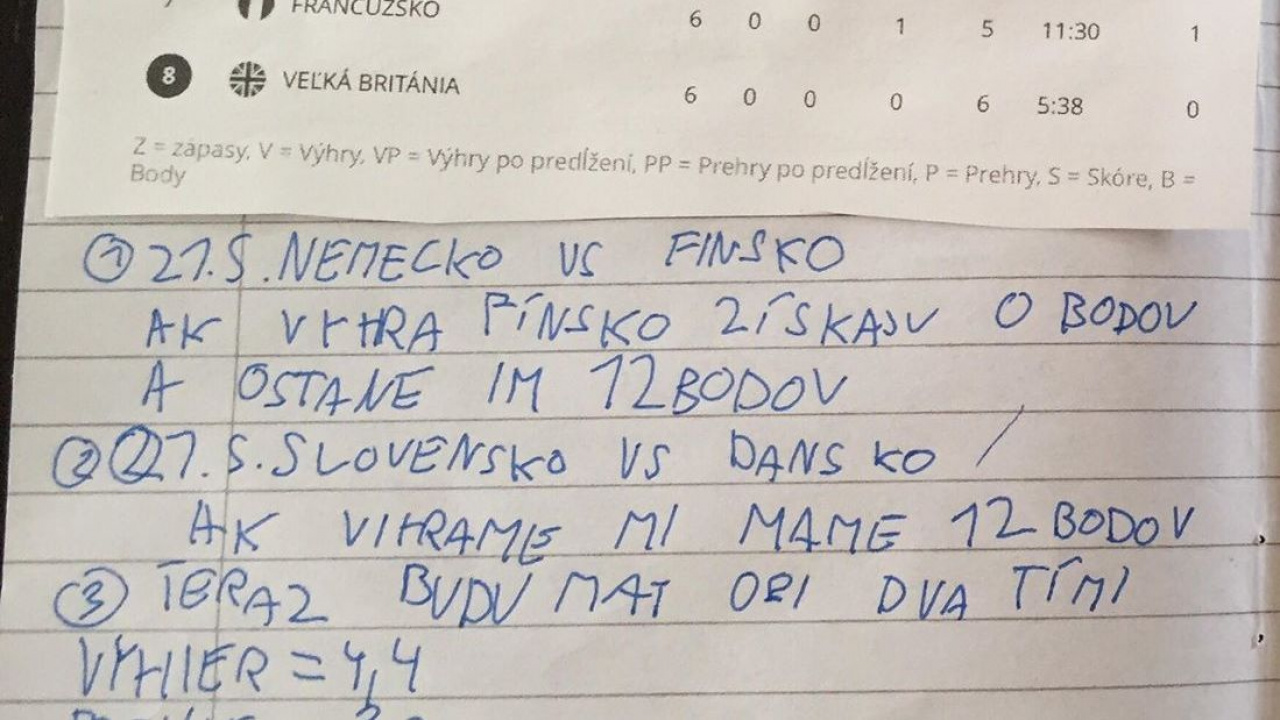 FRANCÚZSKO 6 0 0 1 5 11:30 1
8 VEĽKÁ BRITÁNIA 6 0 0 0 6 5:38 0
Z = zápasy, V = Výhry, VP = Výhry po predĺžení, PP = Prehry po predĺžení, P = Prehry, S = Skóre, B =
Body
① 21.5.NEMECKO VS FINSKO
AK VYHRA FÍNSKO ZÍSKAJU 0 BODOV
A OSTANE IM 12 BODOV
② 21.5.SLOVENSKO VS DANSKO /
AK VIHRAME MI MAME 12 BODOV
③ TERAZ BUDU MAT OBI DVA TÍMI
VYHIER = 4,4